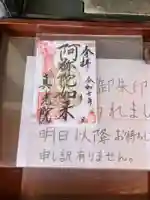 奉拝
阿弥陀如来
令和七年
真光院
御朱印
れました
明日以降お待ち
申し訳ありません。